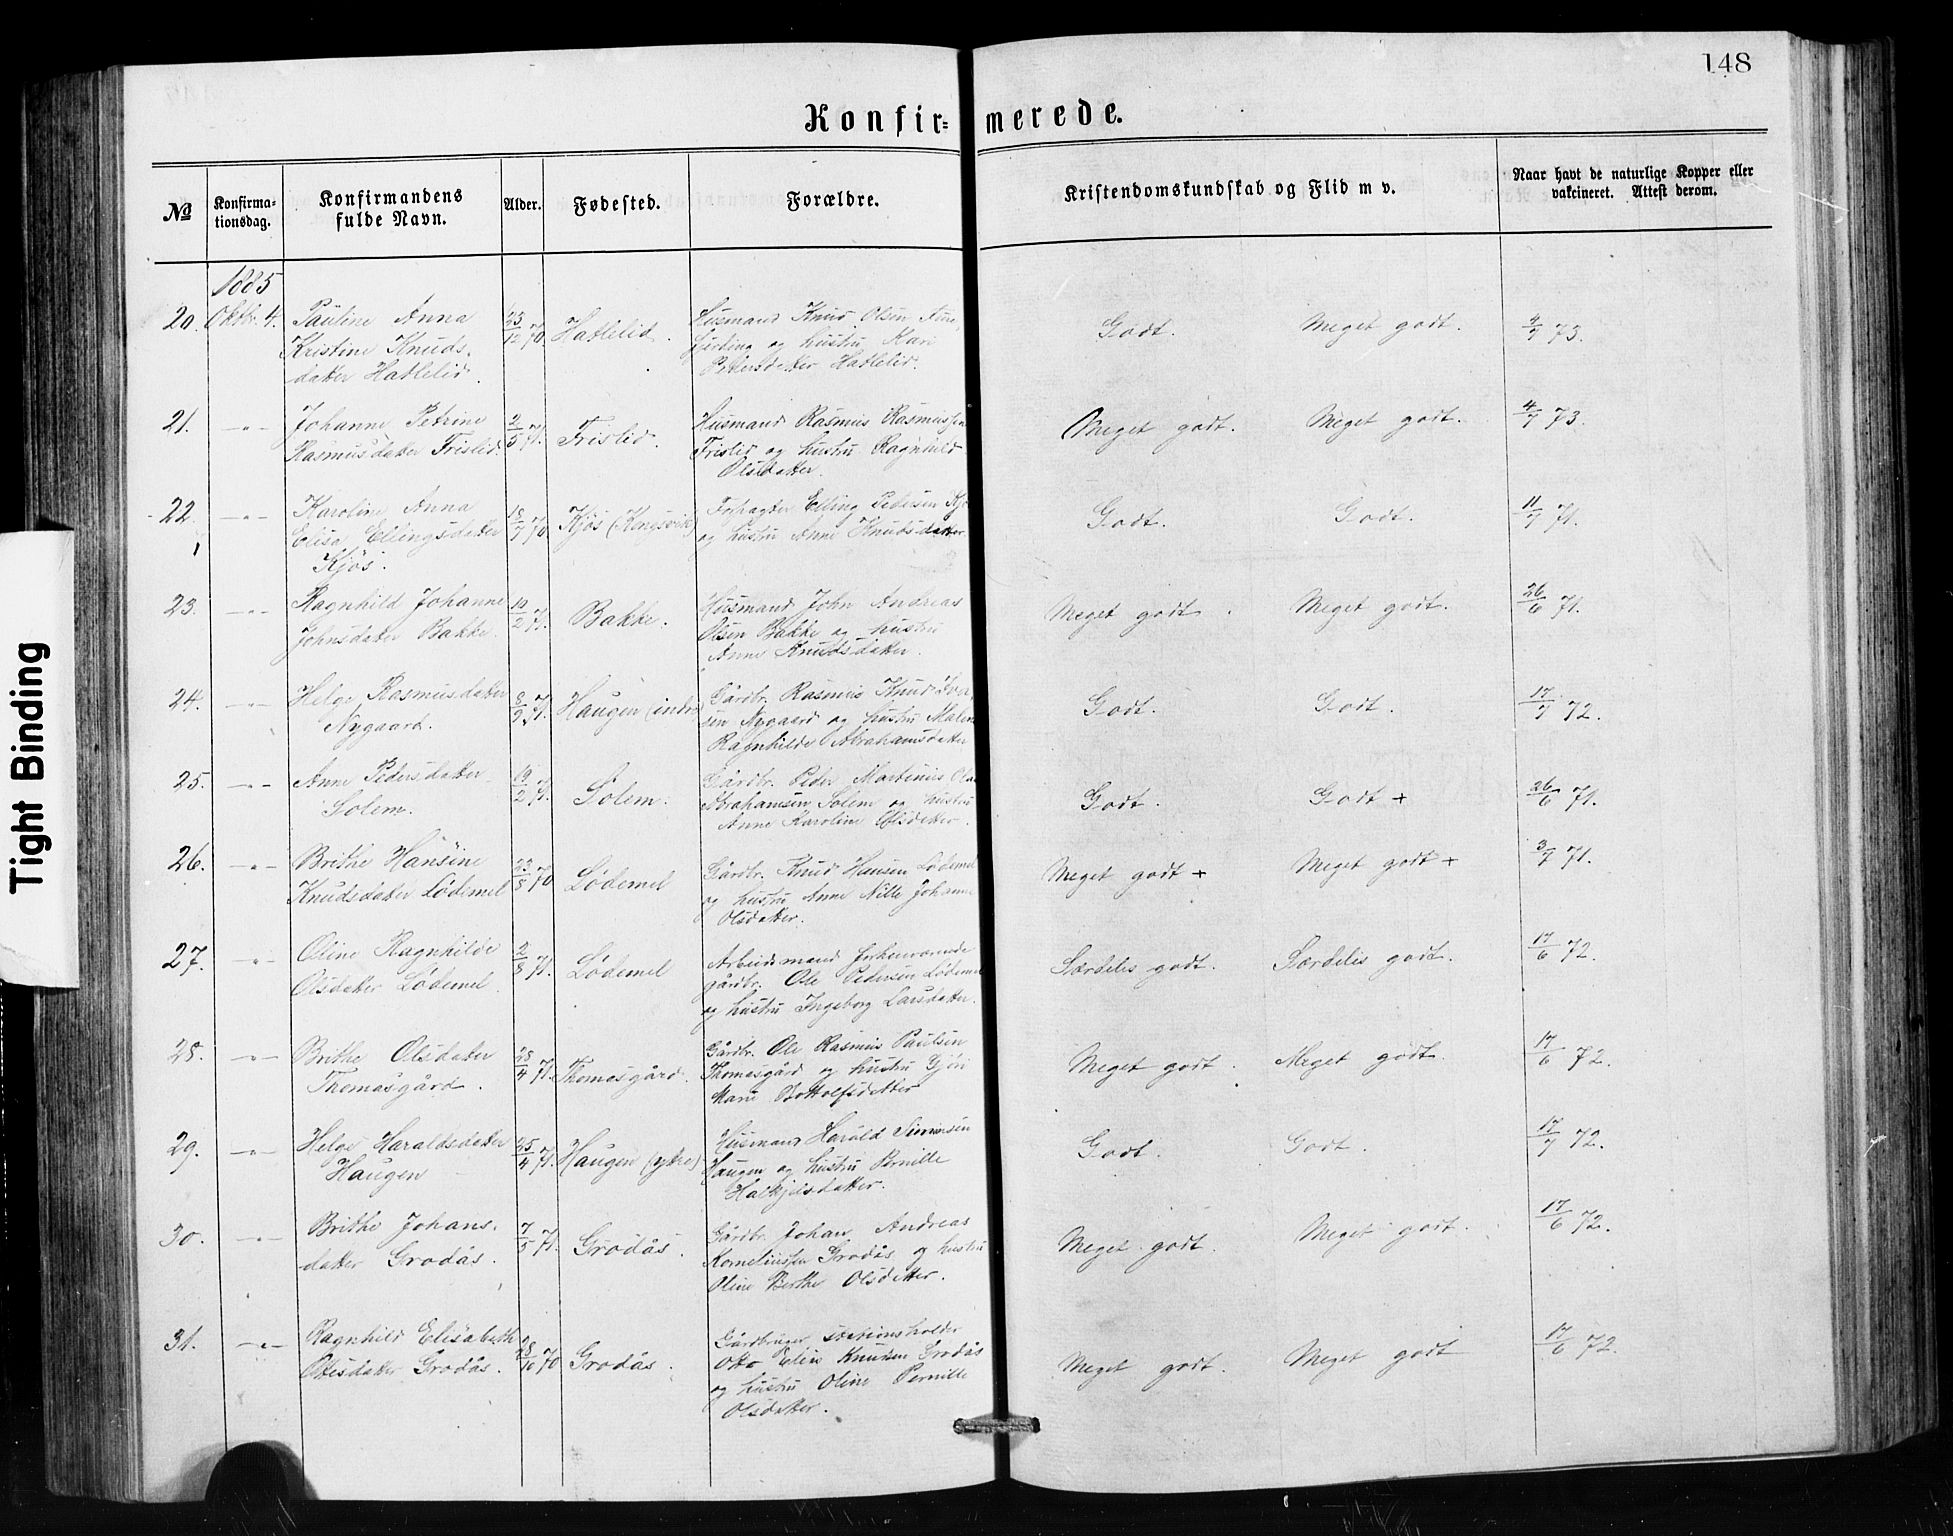 148
Konfir= merede.
No
Konfirma-
tionsdag.
Konfirmandens
fulde Navn.
Alder.
Fødested.
Forældre.
Kristendomskundskab og Flid m v.
Naar havt de naturlige Kopper eller
vakcineret. Attest derom.
1885
20. Oktbr. 4. Pauline Anna 23/12 70. Hatlelid. Husmand Knud Olsen Godt. Meget godt. 4/7 73.
Kristine Knuds- og hustru Kari
datter Hatlelid. Petersdatter Hatlelid.
21. -"- Johanne Petrine 2/5 71. Frislid. Husmand Rasmus Rasmussen Meget godt. Meget godt. 4/7 73.
Rasmusdatter Frislid. Frislid og hustru Ragnhild
Olsdatter.
22. -"- Karoline Anna 18/7 70 Kjøs Forpagter Elling Pedersen Godt. Godt. 11/7 71.
Elisa Ellingsdatter og hustru Anne Knudsdatter
Kjøs.
23. -"- Ragnhild Johanne 10/2 71. Bakke. Husmand John Andreas Meget godt. Meget godt. 26/6 71.
Johnsdatter Bakke. Olsen Bakke og hustru
Anne Knudsdatter.
24. -"- Helge Rasmusdatter 71. Haugen (indre) Gårdbr. Rasmus Godt. Godt. 17/7 72.
Nygaard. Nygaard og hustru Malen
Ragnhilde Abrahamsdatter
25. -"- Anne Pedersdatter 19/2 71. Solem. Gårdbr. Peder Martinus Godt. Godt + 26/6 71.
Solem. Abrahamsen Solem og hustru
Anne Karoline Olsdatter.
26. -"- Brithe Hansine 23/8 70 Lødemel Gårdbr. Knud Hansen Lødemel Meget godt + Meget godt + 3/7 71.
Knudsdatter Lødemel og hustru Anne Nille Johanne
Olsdatter.
27. -"- Oline Ragnhilde 2/8 71. Lødemel Arbeidsmand forhenværende Særdeles godt. Særdeles godt. 17/6 72.
Olsdatter Lødemel. gårdbr. Ole Pedersen Lødemel
og hustru Ingeborg Larsdatter.
28. -"- Brithe Olsdatter 28/4 71. Thomasgård. Gårdbr. Ole Rasmus Paulsen Meget godt. Meget godt. 17/6 72.
Thomasgård. Thomasgård og hustru Gjøri
Marie Bottolfsdatter
29. -"- Helge Haraldsdatter 25/4 71. Haugen (ytre) Husmand Harald Simonsen Godt. Godt. 17/7 72.
Haugen Haugen og hustru Pernille
30. -"- Brithe Johans- 7/5 71. Grodås. Gårdbr. Johan Andreas Meget godt. Meget godt. 17/6 72.
datter Grodås. Korneliussen Grodås og hustru
Oline Berthe Olsdatter.
31. -"- Ragnhild Elisabeth 28/10 70 Grodås. Gårdbruger stationsholder Meget godt. Meget godt 17/6 72.
Grodås. Otto Elias Knudsen Grodås
og hustru Oline Pernille
Olsdatter.
Tight Binding